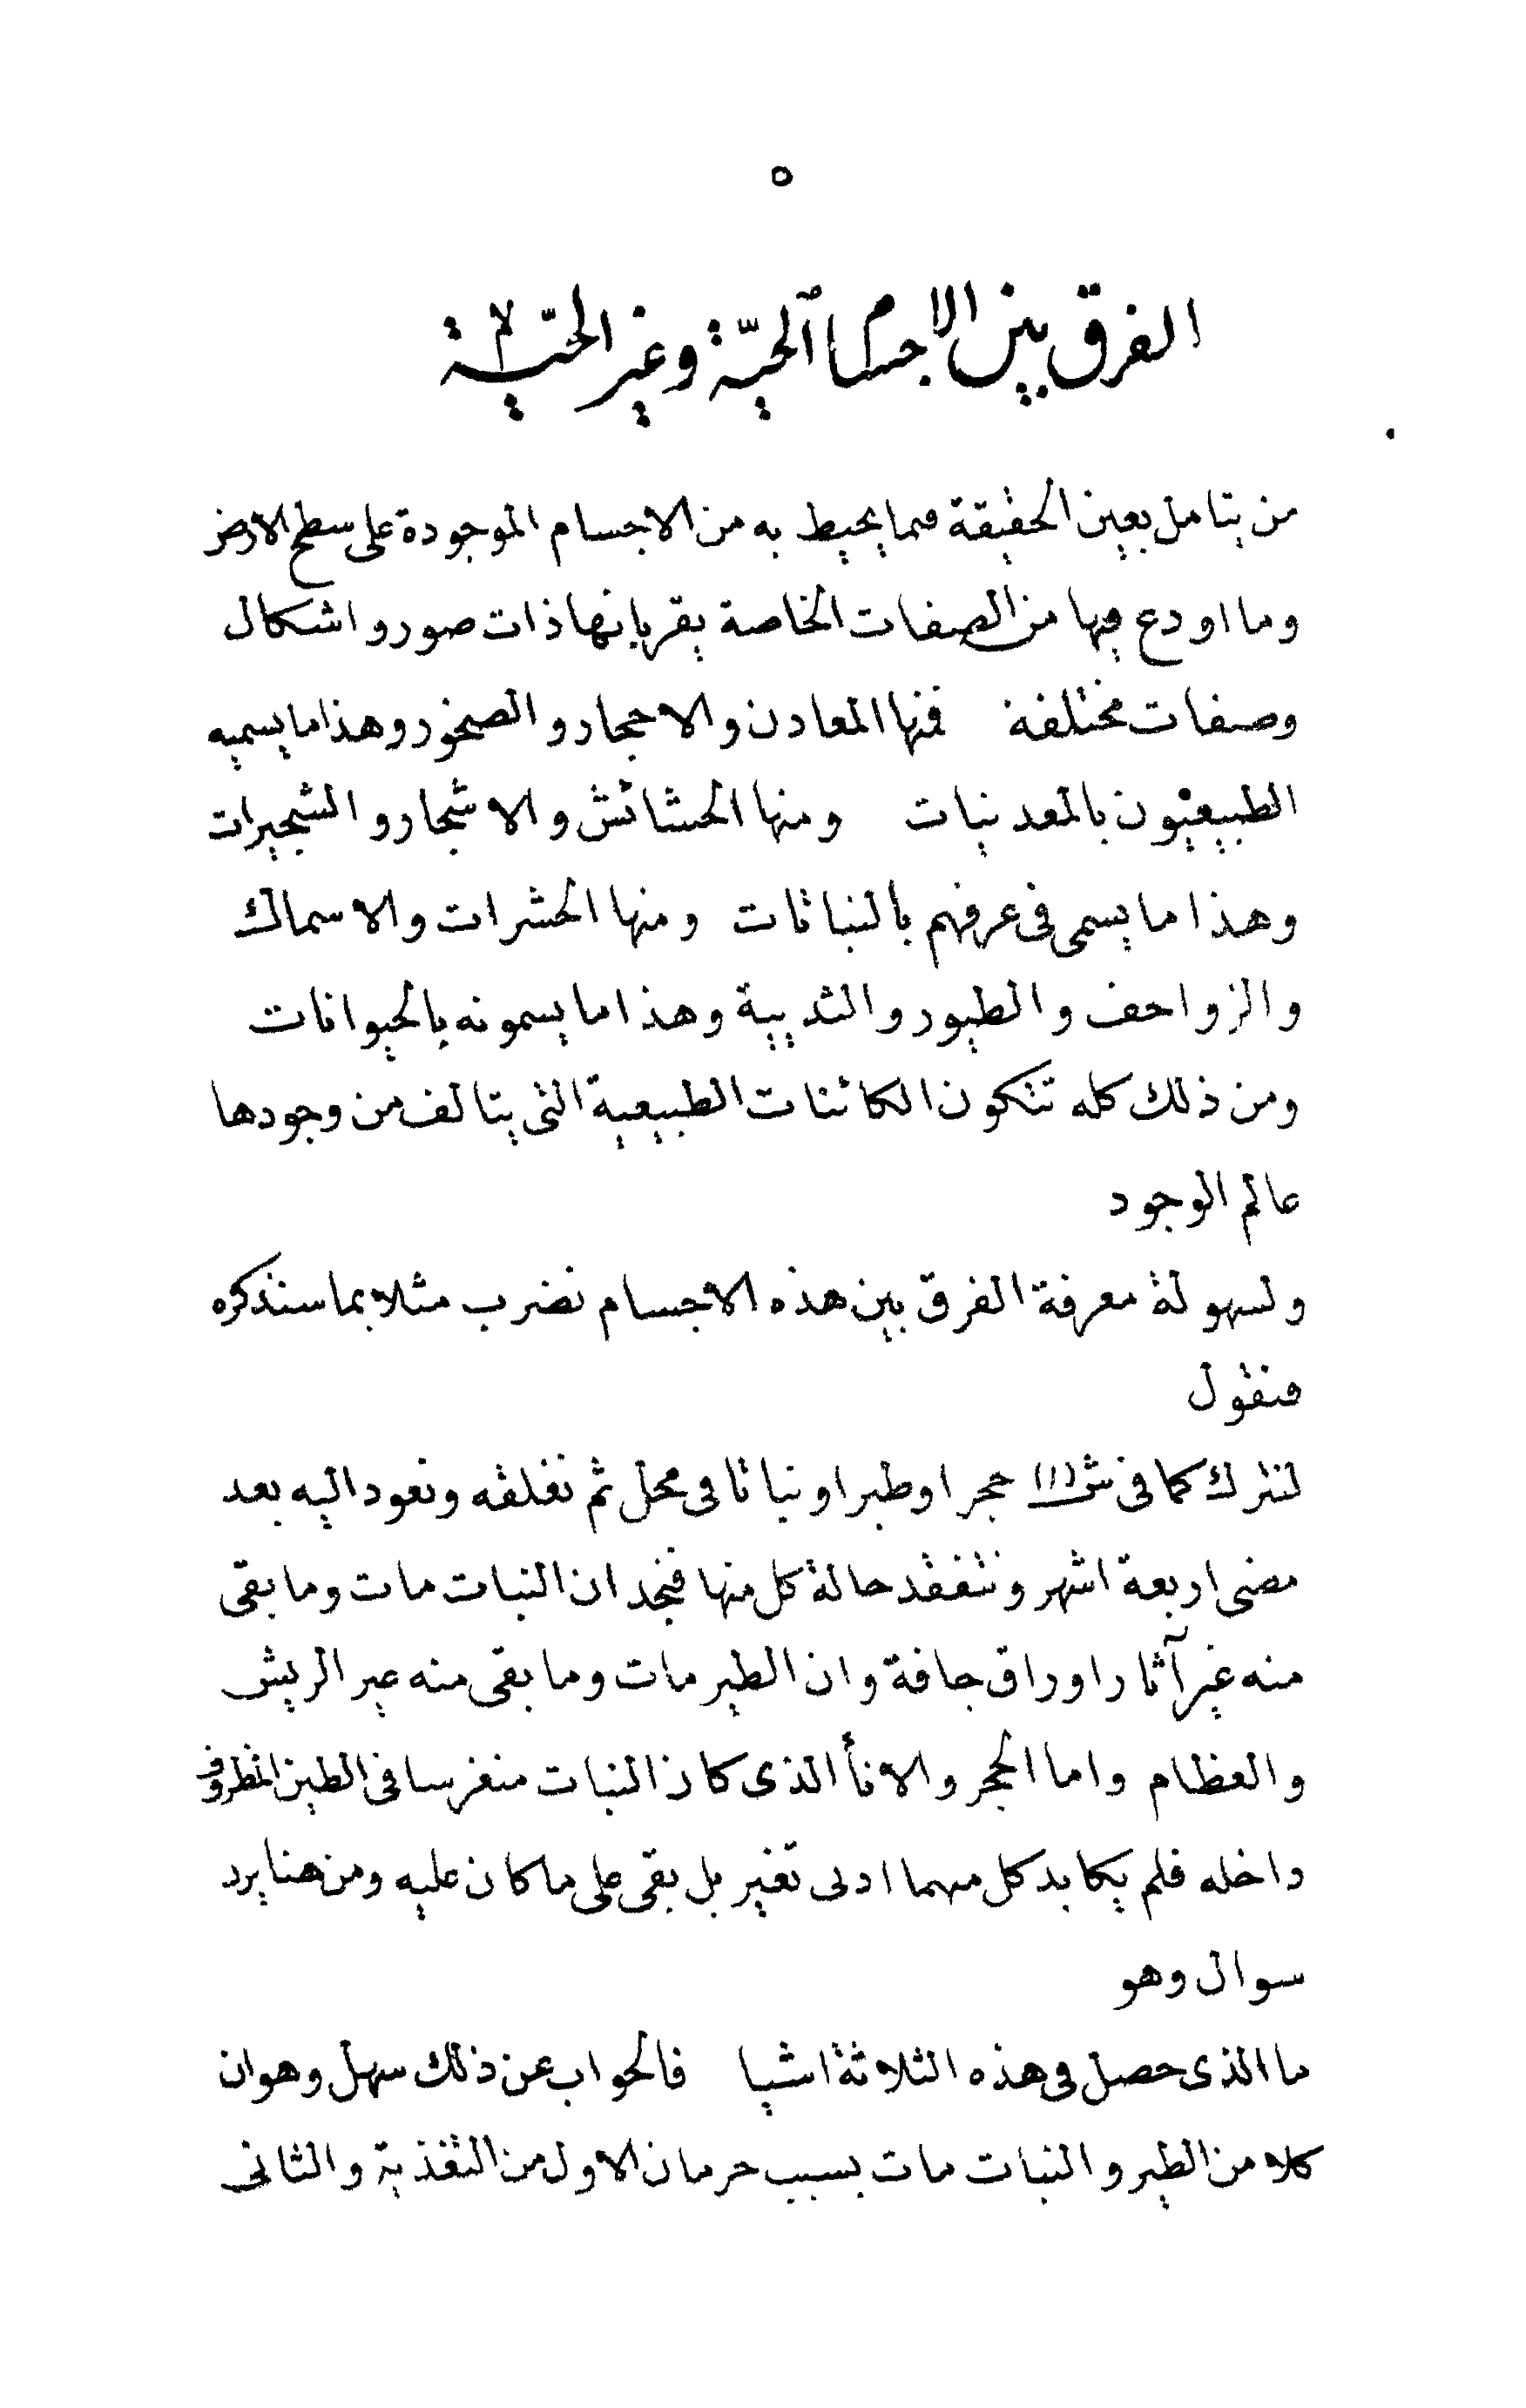 ٥
الفرق بين الاجسام الحيّة وغير الحيّة
من يتامل بعين الحقيقة فيما يحيط به من الاجسام الموجودة على سطح الارض
وما اودع فيها من الصفات الخاصة يقر بانها ذات صور واشكال
وصفات مختلفة فمنها المعادن والاحجار والصخور وهذا ما يسميه
الطبيعيون بالمعدنيات ومنها الحشائش والاشجار والشجيرات
وهذا ما يسمى فى عرفهم بالنباتات ومنها الحشرات والاسماك
والزواحف والطيور والثديية وهذا ما يسمونه بالحيوانات
ومن ذلك كله تتكون الكائنات الطبيعية التى يتالف من وجودها
عالم الوجود
ولسهولة معرفة الفرق بين هذه الاجسام نضرب مثلا بما سنذكره
فنقول
لنترك كما فى ش (١) حجرا وطيرا ونباتا فى محل ثم نغلقه ونعود اليه بعد
مضى اربعة اشهر ونتفقد حالة كل منها فنجد ان النبات مات وما بقى
منه غير آثار اوراق جافة وان الطير مات وما بقى منه غير الريش
والعظام واما الحجر والانأ الذى كان النبات منغرسا فى الطين المظروف
داخله فلم يكابد كل منهما ادنى تغير بل بقى على ما كان عليه ومن هنا يرد
سوال وهو
ما الذى حصل فى هذه الثلاثة اشيا فالجواب عن ذلك سهل وهو ان
كلا من الطير والنبات مات بسبب حرمان الاول من التغذية والثانى